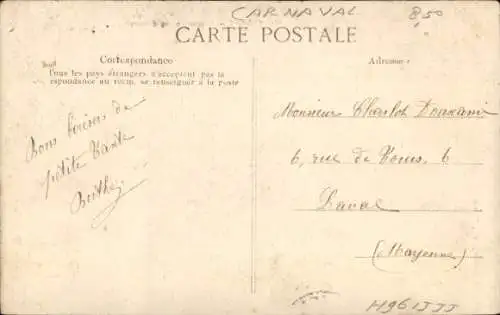 CARNAVAL 8,50
CARTE POSTALE
Correspondance
Tous les pays étrangers n'acceptent pas la
correspondance au recto, se renseigner à la poste
Bons baisers de
petite Tante
Berthe
Adresse
Monsieur Charlot
6, rue de Tours, 6
Laval
(Mayenne)
H961JJJ